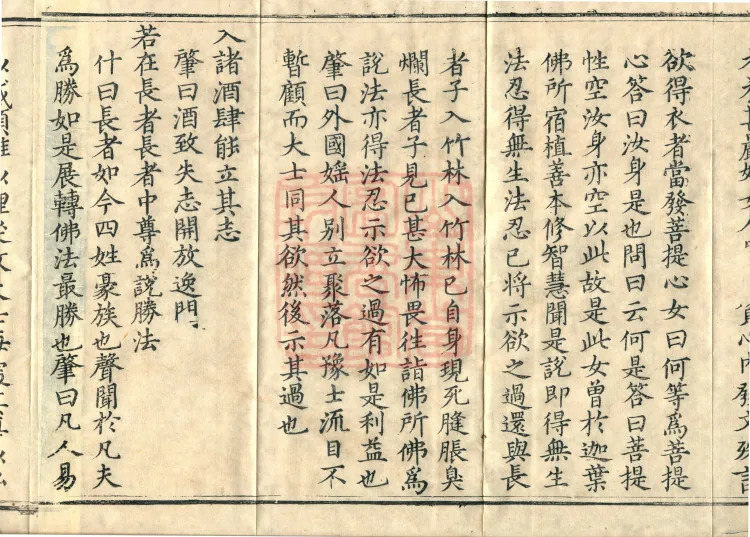 欲得衣者當發菩提心女曰何等為菩提
心答曰汝身是也問曰云何是答曰菩提
性空汝身亦空以此故是此女曾於迦葉
佛所宿植善本修智慧聞是說即得無生
法忍得無生法忍已將示欲之過還與長
者子入竹林入竹林已自身現死膖脹臭
爛長者子見已甚大怖畏往詣佛所佛為
說法亦得法忍示欲之過有如是利益也
肇曰外國婬人別立聚落凡豫士流目不
暫顧而大士同其欲然後示其過也
入諸酒肆能立其志
肇曰酒致失志開放逸門
若在長者長者中尊為說勝法
什曰長者如今四姓豪族也聲聞於凡夫
為勝如是展轉佛法最勝也肇曰凡人易